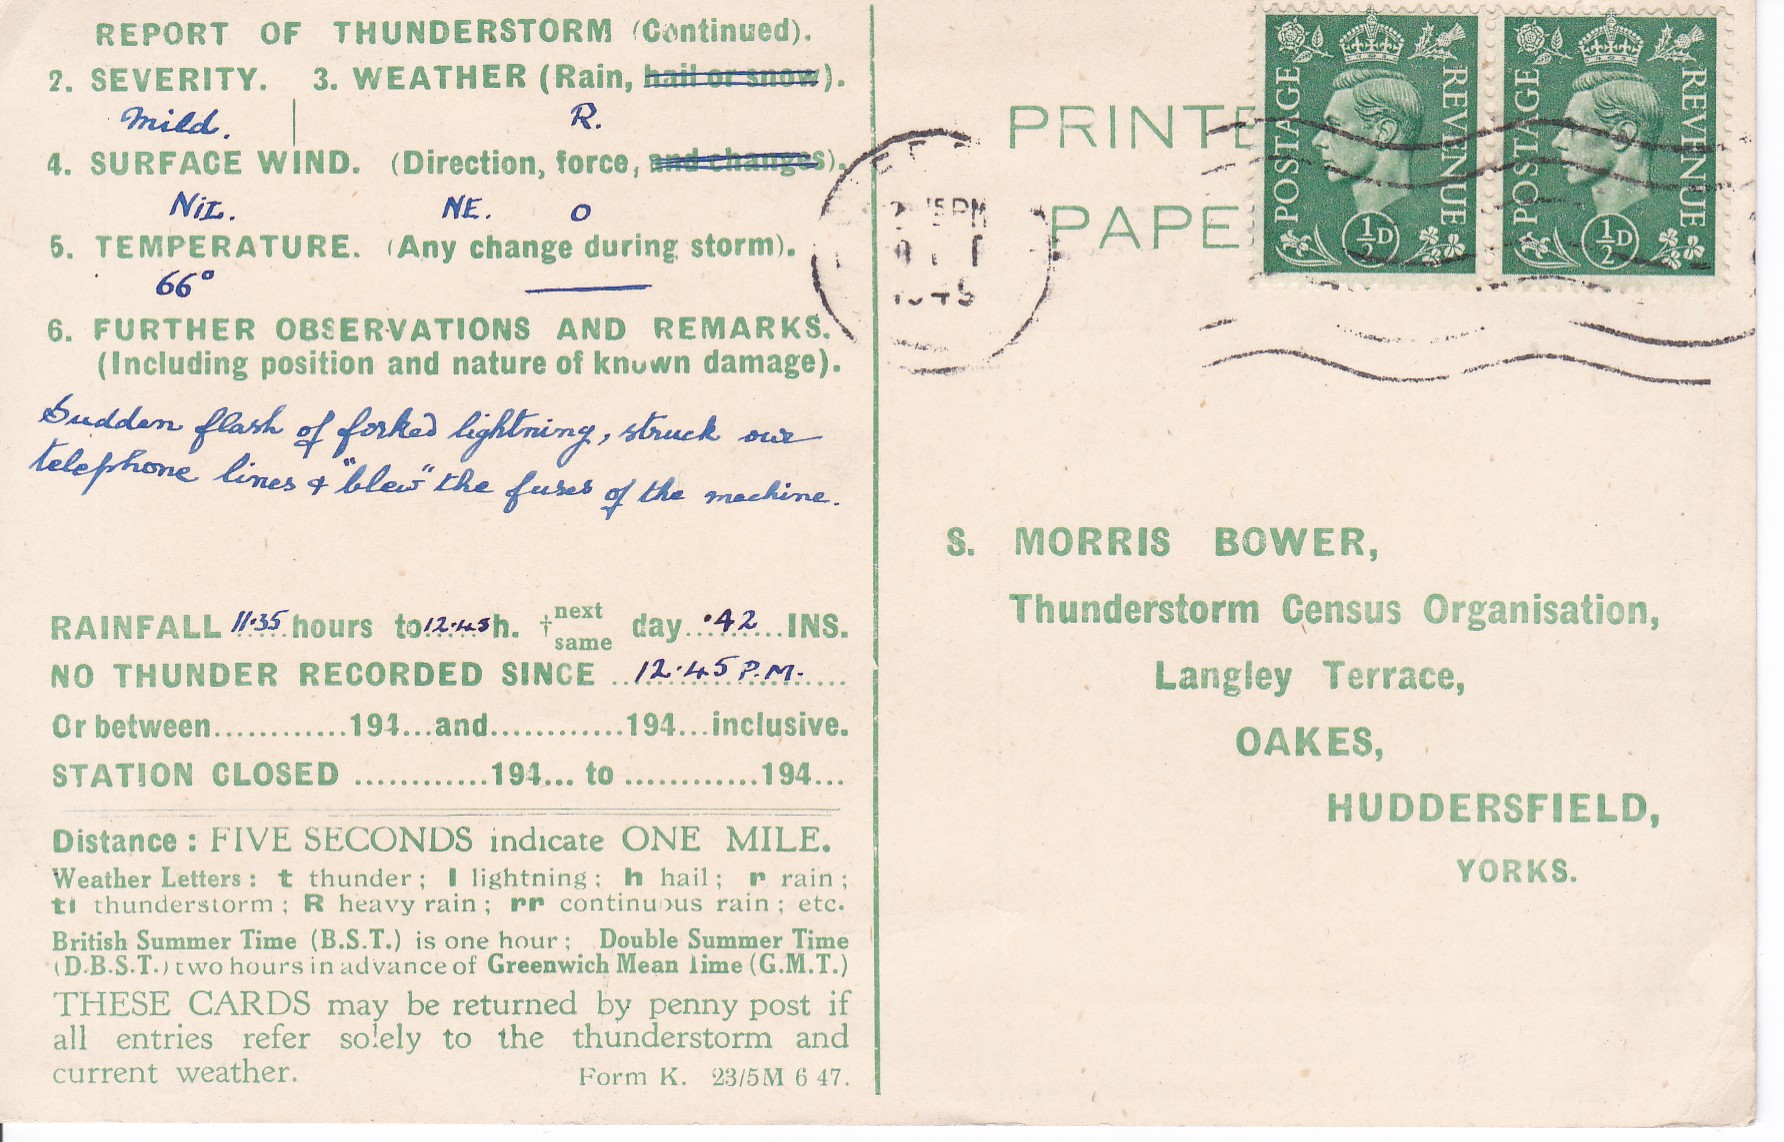 REPORT OF THUNDERSTORM (Continued).
2. SEVERITY. 3. WEATHER (Rain, hail or snow).
Mild. R.
4. SURFACE WIND. (Direction, force, and changes).
NIL. NE. O
5. TEMPERATURE. (Any change during storm).
66°
6. FURTHER OBSERVATIONS AND REMARKS.
(Including position and nature of known damage).
Sudden flash of forked lightning, struck our
telephone lines & "blew" the fuses of the machine.
RAINFALL 11.35 hours to 12.45 h. † next same day .42 INS.
NO THUNDER RECORDED SINCE 12.45 P.M.
Or between............194...and............194...inclusive.
STATION CLOSED ............194... to ............194...
Distance : FIVE SECONDS indicate ONE MILE.
Weather Letters : t thunder ; l lightning ; h hail ; r rain ;
tl thunderstorm ; R heavy rain ; rr continuous rain ; etc.
British Summer Time (B.S.T.) is one hour ; Double Summer Time
(D.B.S.T.) two hours in advance of Greenwich Mean Time (G.M.T.)
THESE CARDS may be returned by penny post if
all entries refer solely to the thunderstorm and
current weather. Form K. 23/5M 6 47.
PRINTE
PAPE
POSTAGE REVENUE ½D
POSTAGE REVENUE ½D
15 PM
S. MORRIS BOWER,
Thunderstorm Census Organisation,
Langley Terrace,
OAKES,
HUDDERSFIELD,
YORKS.